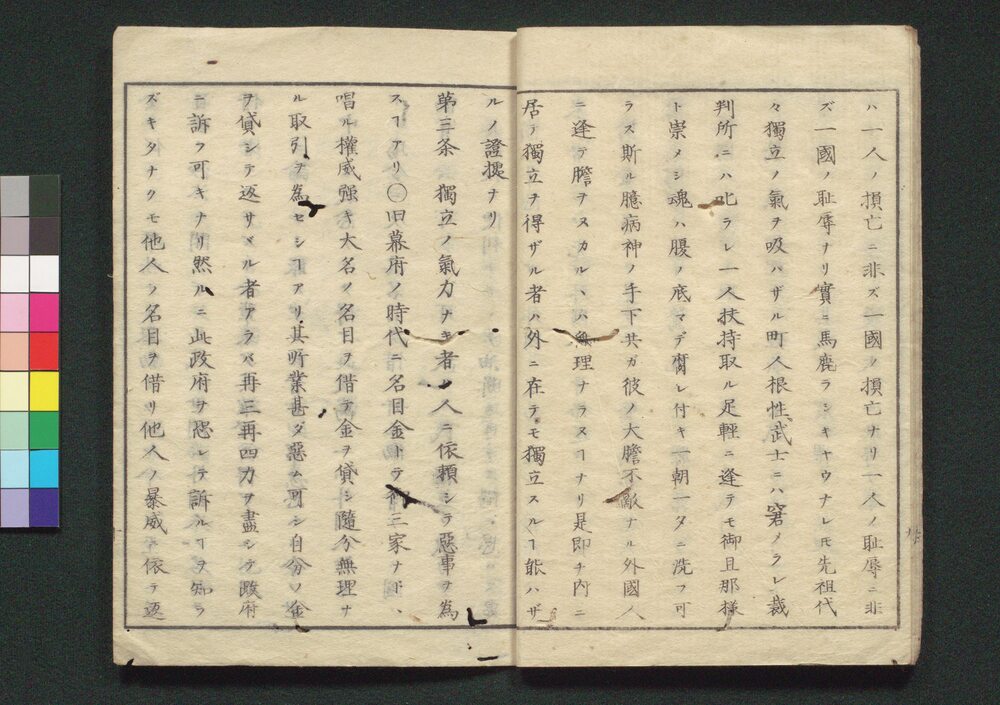 ハ一人ノ損亡ニ非ズ一國ノ損亡ナリ一人ノ耻辱ニ非
ズ一國ノ耻辱ナリ實ニ馬鹿ラシキヤウナレ𪜈先祖代
々獨立ノ氣ヲ吸ハザル町人根性武士ニハ窘メラレ裁
判所ニハ叱ラレ一人扶持取ル足輕ニ逢テモ御旦那様
ト崇メシ魂ハ腹ノ底マデ腐レ付キ一朝一タニ洗フ可
ラス斯ル臆病神ノ手下共ガ彼ノ大膽不敵ナル外國人
ニ逢テ膽ヲヌカルヽハ無理ナラヌヿナリ是即チ内ニ
居テ獨立ヲ得ザル者ハ外ニ在テモ獨立スルヿ能ハザ
ルノ證據ナリ
第三条 獨立ノ氣力ナキ者ハ人ニ依頼シテ惡事ヲ為
スヿアリ○旧幕府ノ時代ニ名目金トテ御三家ナドヽ
唱ル權威强キ大名ノ名目ヲ借テ金ヲ貸シ隨分無理ナ
ル取引ヲ為セシヿアリ其所業甚ダ惡ム可シ自分ノ金
ヲ貸シテ返サヾル者アラバ再三再四力ヲ盡シテ政府
ニ訴フ可キナリ然ルニ此政府ヲ恐レテ訴ルヿヲ知ラ
ズキタナクモ他人ノ名目ヲ借リ他人ノ暴威ニ依テ返